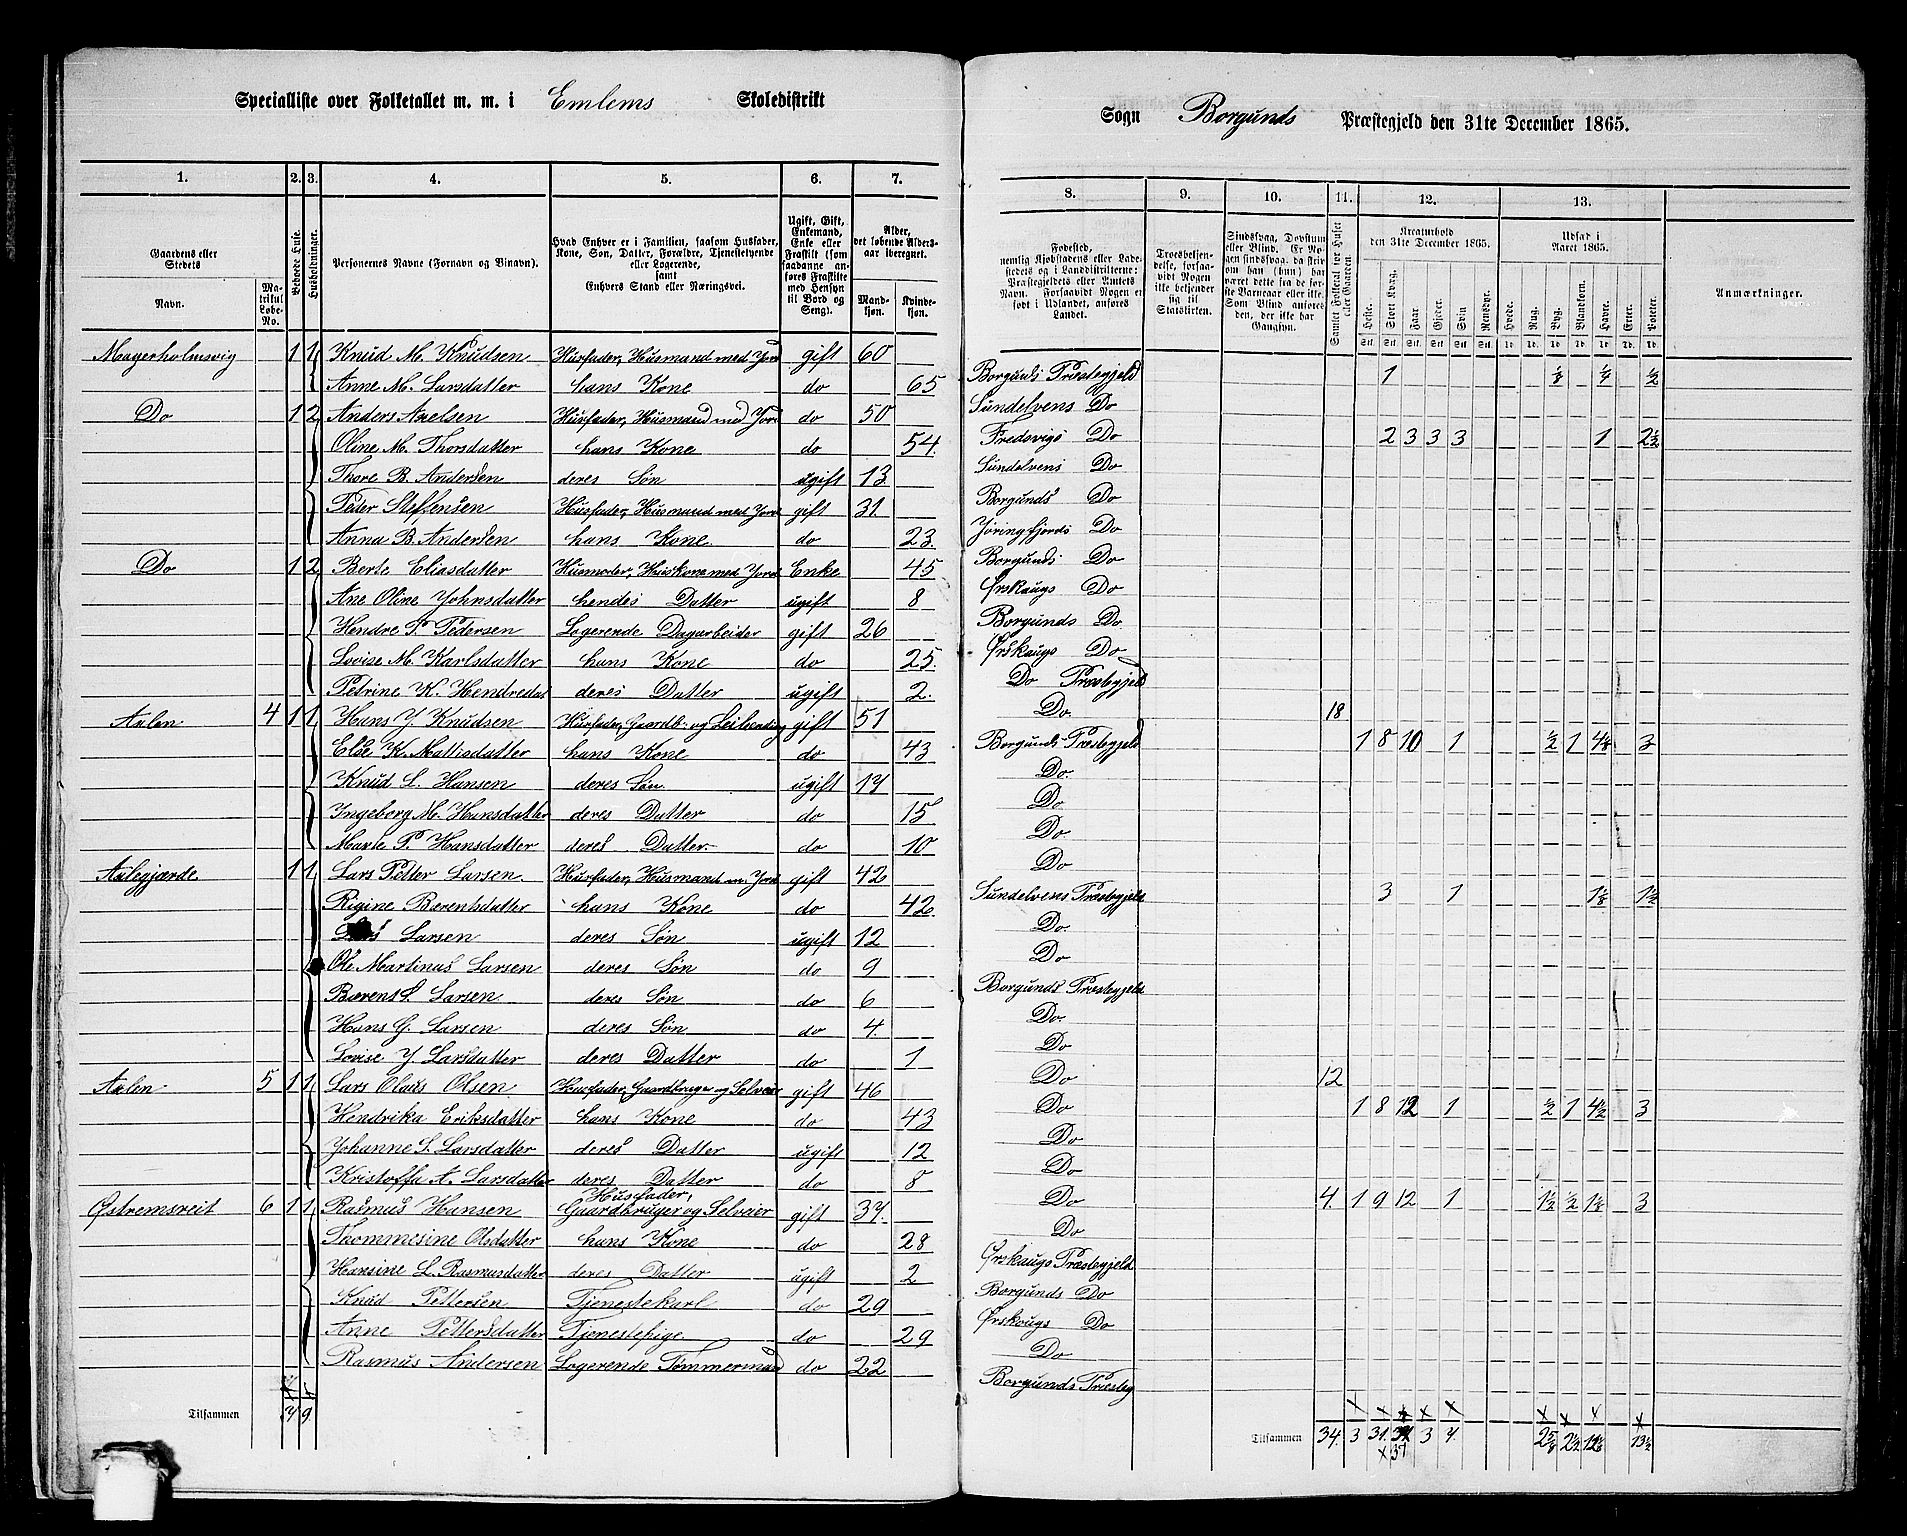 Specialliste over Folketallet m. m. i Emlems Skoledistrikt
Sogn Borgunds Præstegjeld den 31te December 1865.
1. 2. 3. 4. 5. 6. 7.
8. 9. 10. 11. 12. 13.
Gaardens eller Stedets
Navn.
Matrikul Løbe-No.
Bebode Huse.
Husholdninger.
Personernes Navne (Fornavn og Binavn).
Hvad Enhver er i Familien, saasom Husfader, Kone, Søn, Datter, Forældre, Tjenestetyende eller Logerende, samt Enhvers Stand eller Næringsvei.
Ugift, Gift, Enkemand, Enke eller Fraskilt (som saadanne anføres Fraskilte med Hensyn til Bord og Seng).
Alder, det løbende Alders-aar iberegnet.
Mandkjøn. Kvindekjøn.
Fødested, nemlig Kjøbstadens eller Ladestedets og i Landdistrikterne: Præstegjeldets eller Amtets Navn. Forsaavidt Nogen er født i Udlandet, anføres Landet.
Troesbekjendelse, forsaavidt Nogen ikke bekjender sig til Statskirken.
Sindssvag, Døvstum eller Blind. Er Nogen sindssvag, da skriv om han (hun) har været dette fra de første Barneaar eller ikke. Som Blind anføres den, der ikke har Gangsyn.
Samlet Folketal for Huset eller Gaarden.
Kreaturhold den 31te December 1865.
Heste. Stort Kvæg. Faar. Gjeder. Svin. Rensdyr.
Udsæd i Aaret 1865.
Hvede. Rug. Byg. Blandkorn. Havre. Erter. Poteter.
Anmærkninger.
Magerholmsvig 1 1 Knud M. Knudsen Husfader, Husmand med Jord gift 60
Anne M. Larsdatter hans Kone do 65 Borgunds Præstegjeld 1 1/8 1/4 1/2
Do 1 2 Anders Axelsen Husfader, Husmand med Jord do 50 Sundelvens Do
Oline M. Thorsdatter hans Kone do 54. Do 2 3 3 3 1 2 1/2
Thore B. Andersen deres Søn ugift 13 Sundelvens Do
Peder Steffensen Husfader, Husmand med Jord gift 31. Borgunds Do
Anna B. Andersen hans Kone. do 23. Jøringfjords Do
Do 1 2 Berte Eliasdatter Husmoder, Huskone med Jord Enke 45 Borgunds Do
Ane Oline Johnsdatter hendes Datter ugift 8 Ørskougs Do
Hendre P. Pedersen Logerende Dagarbeider gift 26 Borgunds Do
Lovise M. Karlsdatter hans Kone do 25. Ørskougs Do
Petrine K. Hendredat deres Datter ugift 2. Do Præstegjeld
Aalen 4 1 1 Hans J. Knudsen Husfader, Gaardb. og Leilending gift 51 Do. 18
Else K. Mattisdatter hans Kone do 43 Borgunds Præstegjeld 1 8 10 1 1/2 1 4 1/8 3
Knud L. Hansen deres Søn ugift 17 Do.
Ingeborg M. Hansdatter deres Datter do 15 Do
Marte P. Hansdatter deres Datter. do 10 Do.
Aalegjærde. 1 1 Lars Petter Larsen. Husfader, Husmand m. Jord gift 42 Do
Rigine Bærentsdatter hans Kone do 42 Sundelvens Præstegjeld 3 1 1 1/8 1 1/2
Larsen deres Søn ugift 12 Do.
Ole Martinus Larsen deres Søn do 9 Do
Bærent L. Larsen deres Søn do 6 Borgunds Præstegjeld
Hans G. Larsen deres Søn do 4. Do.
Lovise J. Larsdatter deres Datter do 1 Do
Aalen 5 1 1 Lars Olaus Olsen Husfader, Gaardbruger og Selveier gift 46 Do 12
Hendrika Eriksdatter hans Kone do 43 Do 1 8 12 1 1/2 1 4 1/2 3
Johanne S. Larsdatter deres Datter ugift 12 Do
Kristoffa A. Larsdatter deres Datter do 8 Do
Østremsreit 6 1 1 Rasmus Hansen Husfader, Gaardbruger og Selveier gift 37. Do 4. 1 9 12 1 1 1/2 1/2 1 1/8 3
Thommesine Olsdatter hans Kone do 28 Do
Hansine L. Rasmusdatter deres Datter ugift 2 Ørskougs Præstegjeld
Knud Pettersen Tjenestekarl do 29 Borgunds Do
Anne Pettersdatter Tjenestepige. do 29 Ørskougs Do
Rasmus Andersen Logerende Tømmermand do 22 Do
Borgunds Præsteg
Tilsammen 7 9
Tilsammen 34. 3 31. 37 3 7. 2 5/8 2 1/2 13 1/2
x37